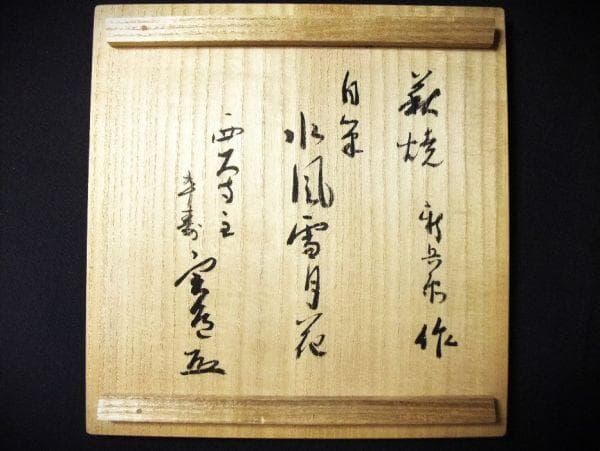 萩焼 新兵衛 作
自筆
水風雪月花
西大寺主
卒寿